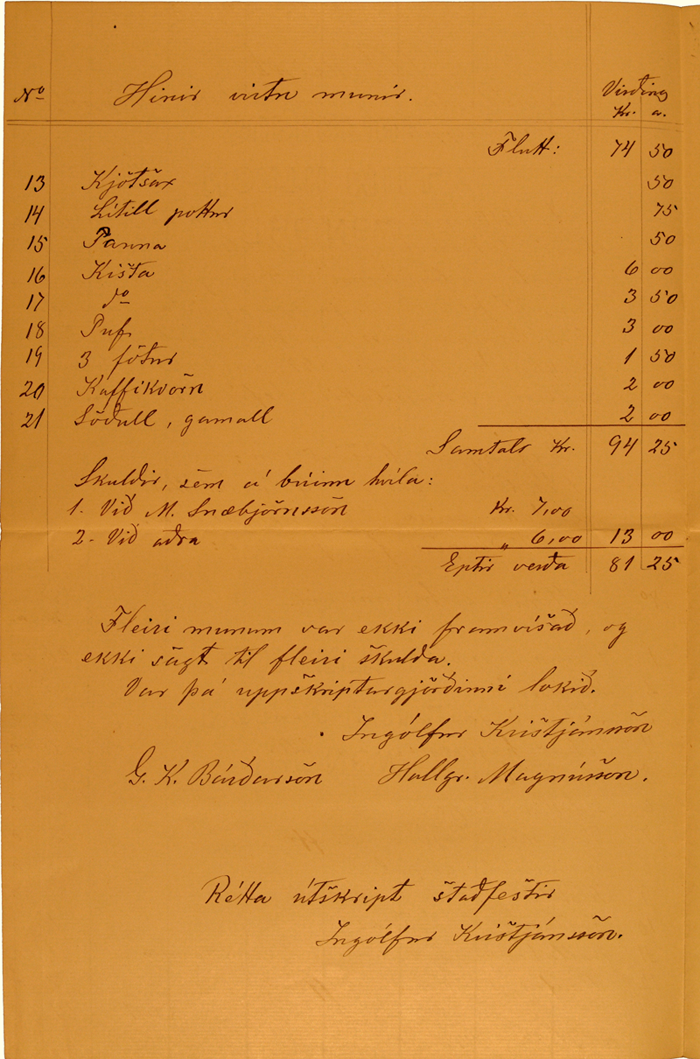 No Hinir virtu munir. Virðing
Kr. a.
Flutt: 74 50
13 Kjötsax 50
14 Lítill pottur 75
15 Panna 50
16 Kista 6 00
17 do 3 50
18 Puf 3 00
19 3 fötur 1 50
20 Kaffikvörn 2 00
21 Söðull, gamall 2 00
Samtals Kr. 94 25
Skuldir, sem á búinu hvíla:
1. Við M. Snæbjörnsson Kr. 7,00
2. Við aðra " 6,00 13 00
Eptir verða 81 25
Fleiri munum var ekki framvísað, og
ekki sagt til fleiri skulda.
Var þá uppskriptargjörðinni lokið.
Ingólfur Kristjánsson
G. K. Bárðarson Hallgr. Magnússon.
Rétta útskript staðfestir
Ingólfur Kristjánsson.